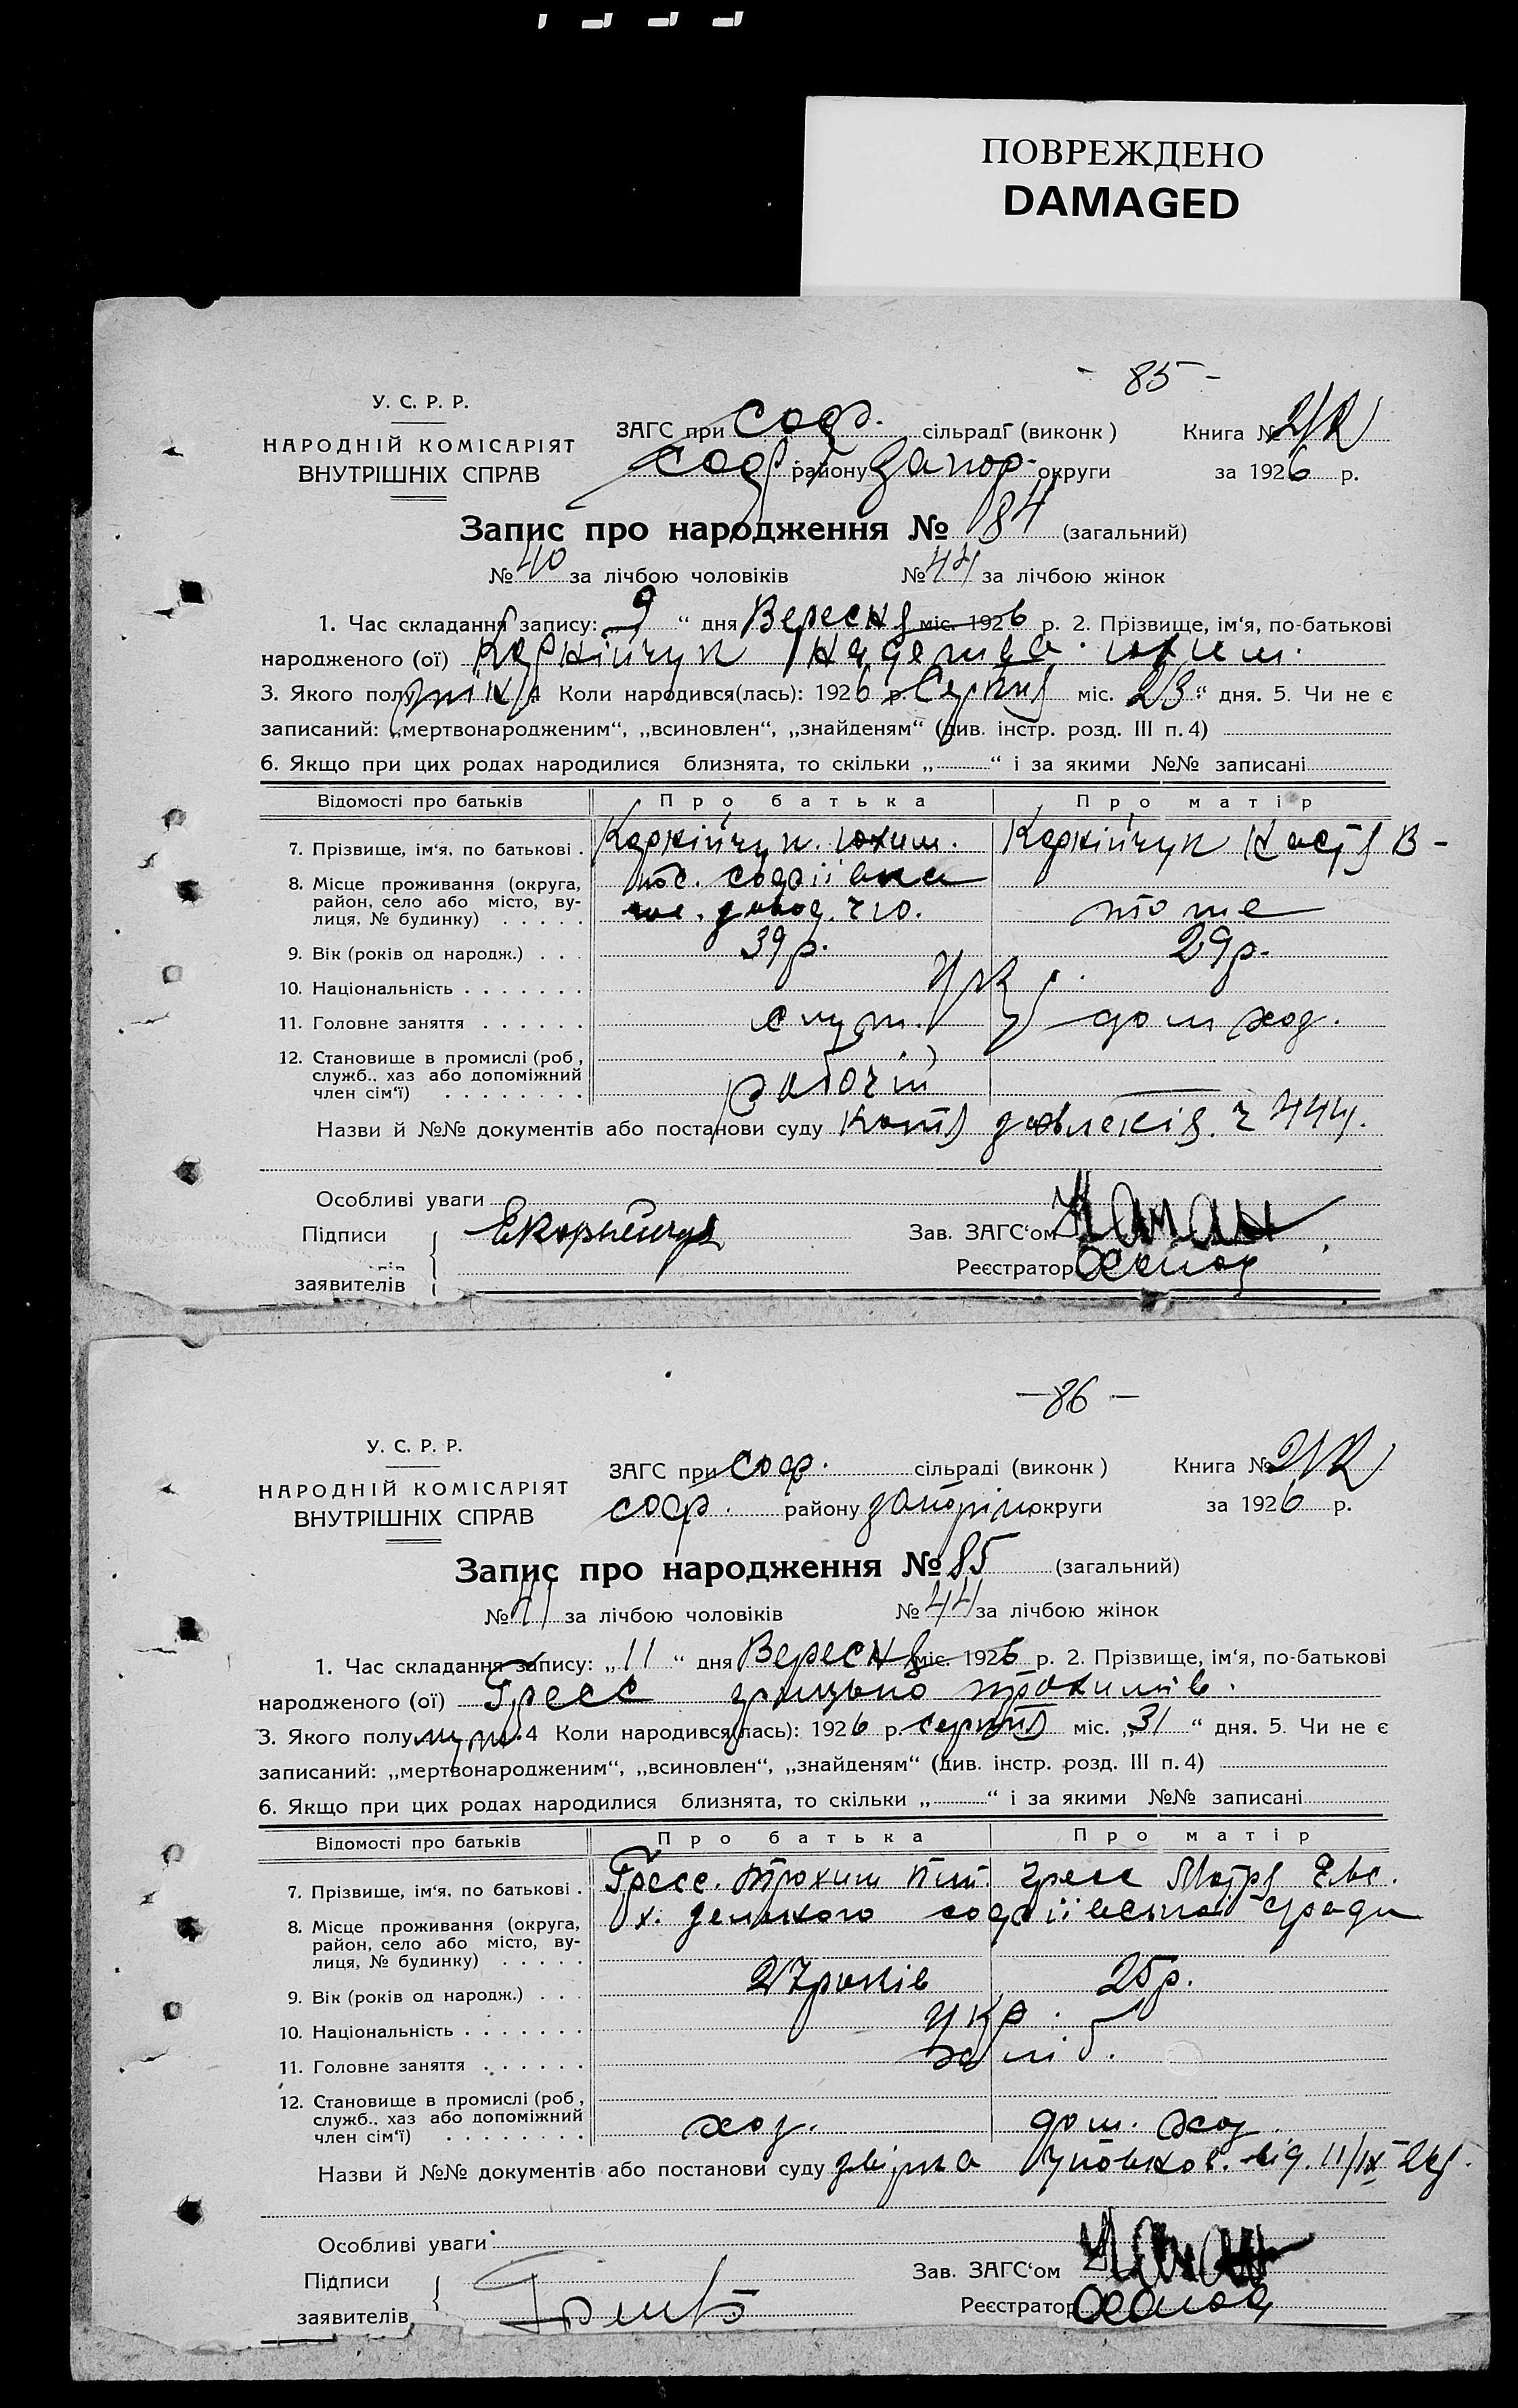 ПОВРЕЖДЕНО
DAMAGED
- 85 -
У. С. Р. Р.
НАРОДНІЙ КОМІСАРІЯТ
ВНУТРІШНІХ СПРАВ
ЗАГС при Соф. сільраді (виконк) Книга №
Соф району Запор. округи за 1926 р.
Запис про народження № 84 (загальний)
№ 40 за лічбою чоловіків № 44 за лічбою жінок
1. Час складання запису: „9“ дня Вересня міс. 1926 р. 2. Прізвище, ім‘я, по-батькові
народженого (ої) Корнійчук Надежда Юхим.
3. Якого полу жін 4 Коли народився(лась): 1926 р. Серпня міс. 23“ дня. 5. Чи не є
записаний: „мертвонародженим“, „всиновлен“, „знайденям“ (див. інстр. розд. III п. 4)
6. Якщо при цих родах народилися близнята, то скільки „ “ і за якими №№ записані
Відомості про батьків Про батька Про матір
7. Прізвище, ім‘я, по батькові . Корнійчук Юхим. Корнійчук Настя В -
8. Місце проживання (округа, район, село або місто, вулиця, № будинку) . . . . пос. Софіївка
тоже
9. Вік (років од народж.) . . . 39 р. 29 р.
10. Національність . . . . . . . Укр.
11. Головне заняття . . . . . . служ. дом хоз.
12. Становище в промислі (роб, служб., хаз або допоміжний член сім‘ї) . . . . . . . . рабочій
Назви й №№ документів або постанови суду 444.
Особливі уваги
Підписи ЕКорнейчук Зав. ЗАГС‘ом
Реєстратор
заявителів
— 86 —
У. С. Р. Р.
НАРОДНІЙ КОМІСАРІЯТ
ВНУТРІШНІХ СПРАВ
ЗАГС при Соф. сільраді (виконк) Книга №
Соф. району Запоріж округи за 1926 р.
Запис про народження № 85 (загальний)
№ 41 за лічбою чоловіків № 44 за лічбою жінок
1. Час складання запису: „11“ дня Вересня міс. 1926 р. 2. Прізвище, ім‘я, по-батькові
народженого (ої) Гресс Грицько Трохимів.
3. Якого полу муж. 4 Коли народився(лась): 1926 р. серпня міс. „31“ дня. 5. Чи не є
записаний: „мертвонародженим“, „всиновлен“, „знайденям“ (див. інстр. розд. III п. 4)
6. Якщо при цих родах народилися близнята, то скільки „ “ і за якими №№ записані
Відомості про батьків Про батька Про матір
7. Прізвище, ім‘я, по батькові . Гресс. Трохим Гресс Мотря
8. Місце проживання (округа, район, село або місто, вулиця, № будинку) . . . . . х. софіївської
9. Вік (років од народж.) . . . 27 років 25 р.
10. Національність . . . . . . . укр.
11. Головне заняття . . . . . . хліб.
12. Становище в промислі (роб, служб., хаз або допоміжний член сім‘ї) . . . . . . . . хоз. дом. хоз
Назви й №№ документів або постанови суду від. 11/IX 26
Особливі уваги
Підписи Зав. ЗАГС‘ом
заявителів Реєстратор